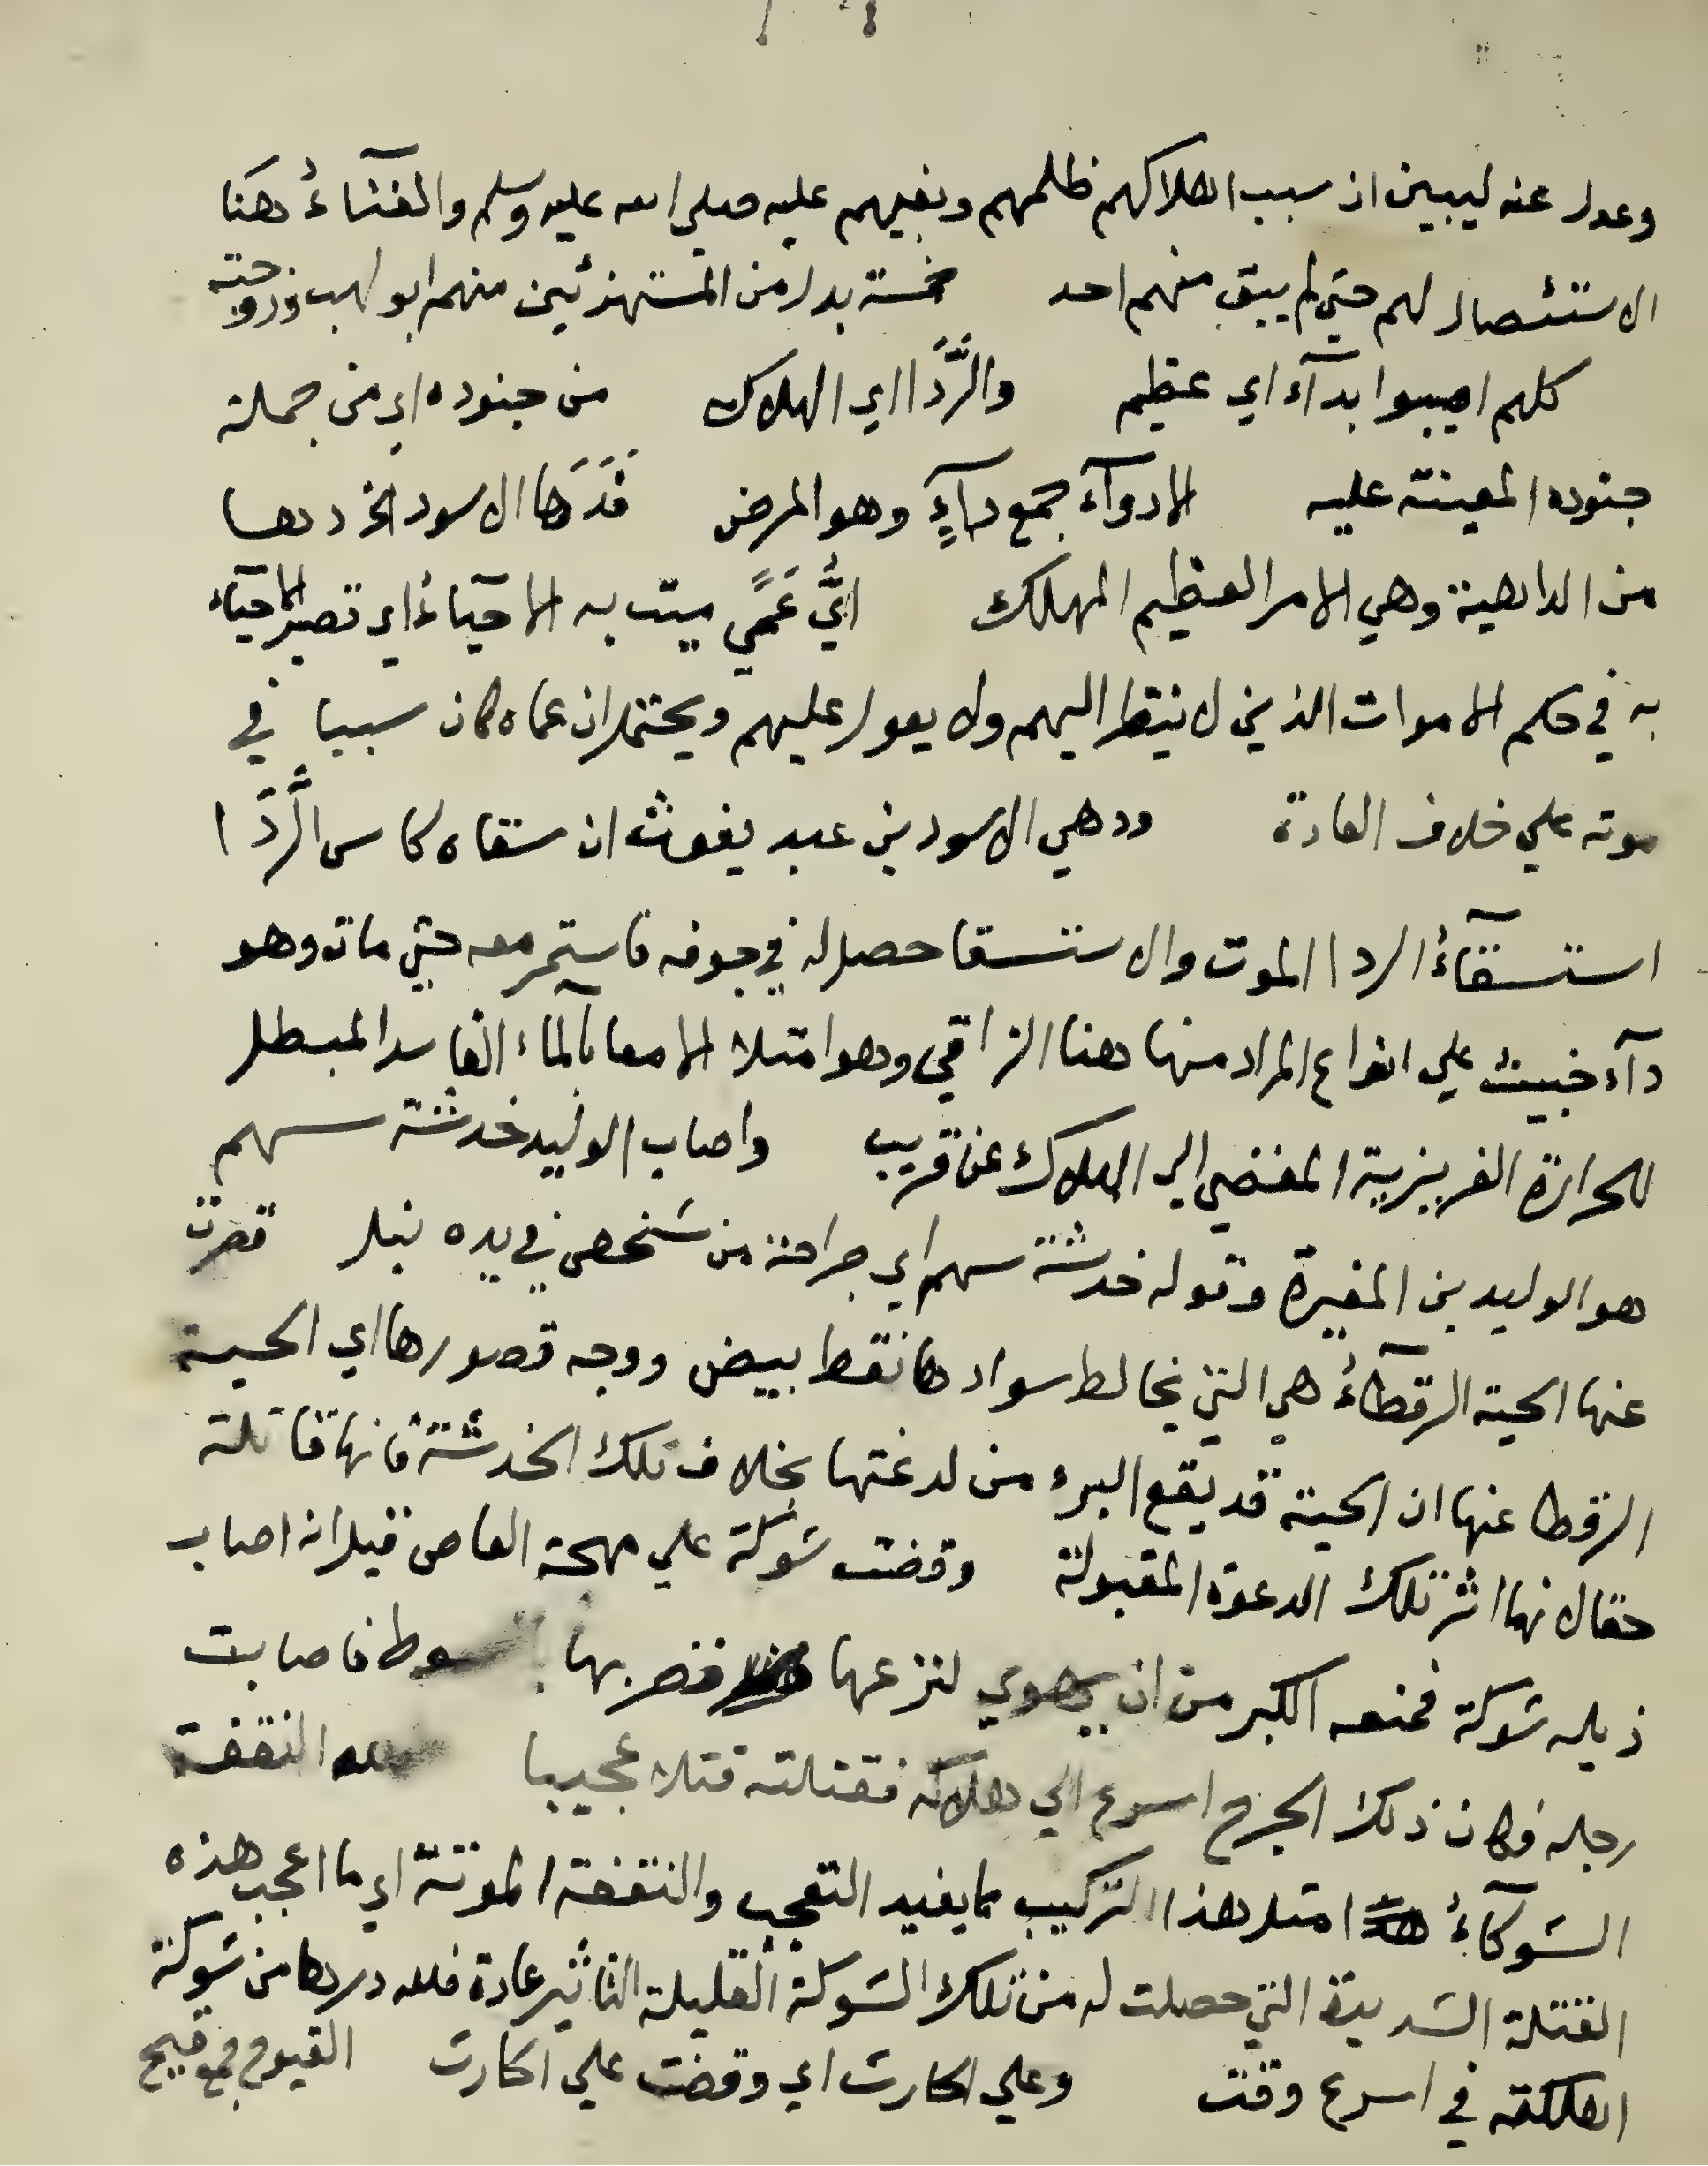 وعدل عنه ليبين ان سبب اهلاكهم ظلمهم وبغيهم عليه صلي الله عليه وسلم والفنآءُ هنا
الاستئصال لهم حتي لم يبق منهم احد خمسة بدل من المستهزئين منهم ابو لهب وزوجته
كلهم اصيبوا بدآء اي عظيم والرَّدَا اي الهلاك من جنوده اي من جملة
جنوده المعينة عليه الادوآء جمع دآءٍ وهو المرض فَدَهَا الاسود الخ دها
من الداهية وهي الامر العظيم المهلك ايُّ عَمًي ميت به الاحياءُ اي تصير الاحيآء
به في حكم الاموات الذين لا ينظر اليهم ولا يعول عليهم ويحتمل ان عماه كان سببا في
موته علي خلاف العادة ودهي الاسود بن عبد يغوث ان سقاه كاس الرَّدَا
استسقآءُ الردا الموت والاستسقا حصل له في جوفه فاستمر معه حتي مات وهو
دآء خبيث علي انواع المراد منها هنا الزاقي وهو امتلا الامعا بالمآء الفاسد المبطل
للحرارة الغريزية المفضي الي الهلاك عن قريب واصاب الوليد خدشة سهم
هو الوليد بن المغيرة وقوله خدشة سهم اي جراحة من شخص في يده نبل قصرت
عنها الحية الرقطآءُ هي التي يخالط سوادها نقط بيض ووجه قصورها اي الحية
الرقطا عنها ان الحية قد يقع البرء من لدغتها بخلاف تلك الخدشة فانها قاتلة
حقا لانها اثر تلك الدعوة المقبولة وقضت شوكة علي مهجة العاص قيل انه اصاب
ذيله شوكة فمنعه الكبر من ان يهوي لنزعها فضربها بالسوط فاصابت
رجله فكان ذلك الجرح اسرع الي هلاكه فقتلته قتلا عجيبا لله النقعة
الشوكآءُ امثل هذا التركيب مما يفيد التعجب والنقعة الموتة اي ما اعجب هذه
القتلة الشديدة التي حصلت له من تلك الشوكة القليلة التاثير عادة فلله درها من شوكة
اهلكته في اسرع وقت وعلي الحارث اي وقضت علي الحارث القيوح جمع قيح